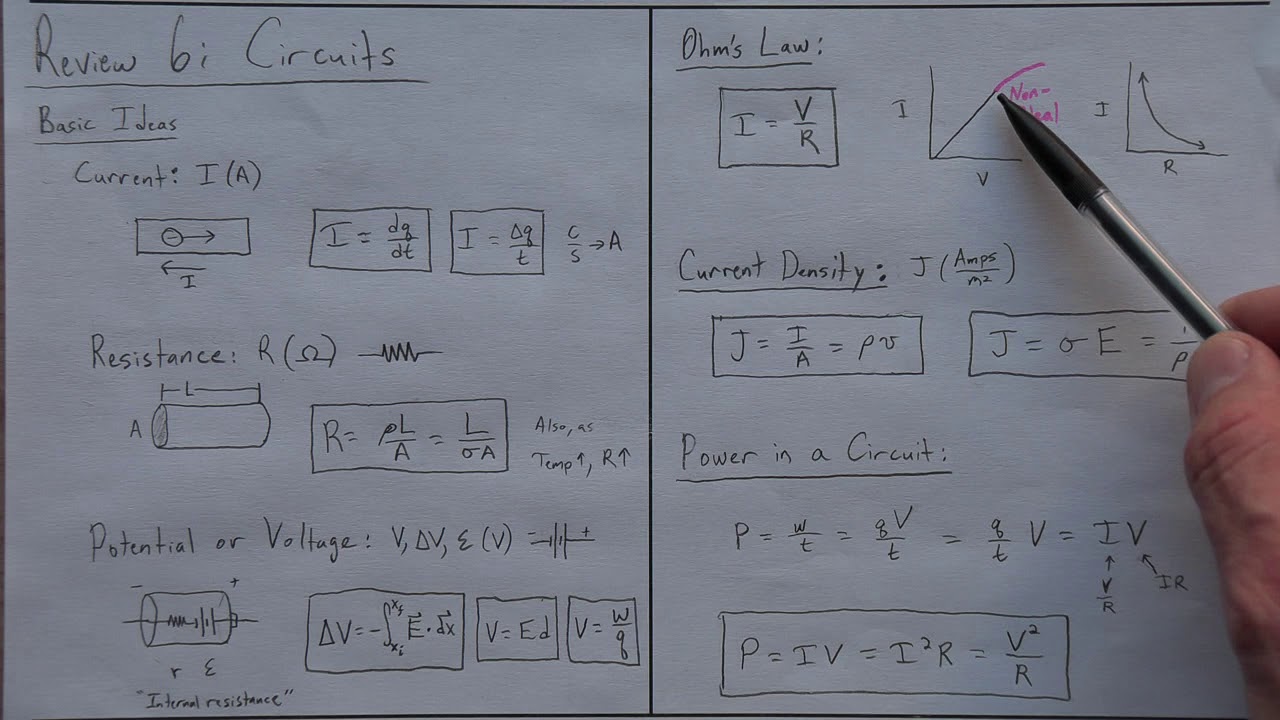 Review 6: Circuits
Basic Ideas
Current: I (A)
I
I = dq/dt
I = Δq/t
C/s → A
Resistance: R (Ω)
L
A
R = ρL/A = L/σA
Also, as
Temp↑, R↑
Potential or Voltage: V, ΔV, ℰ (V) = +
- +
r ℰ
"Internal resistance"
ΔV = -∫xi xf E⃗ · dx⃗
V = Ed
V = W/q
Ohm's Law:
I = V/R
I
V
Non-
I
R
Current Density: J (Amps/m²)
J = I/A = ρv
J = σE = 1/ρ
Power in a Circuit:
P = W/t = qV/t = q/t V = IV
V/R
IR
P = IV = I²R = V²/R